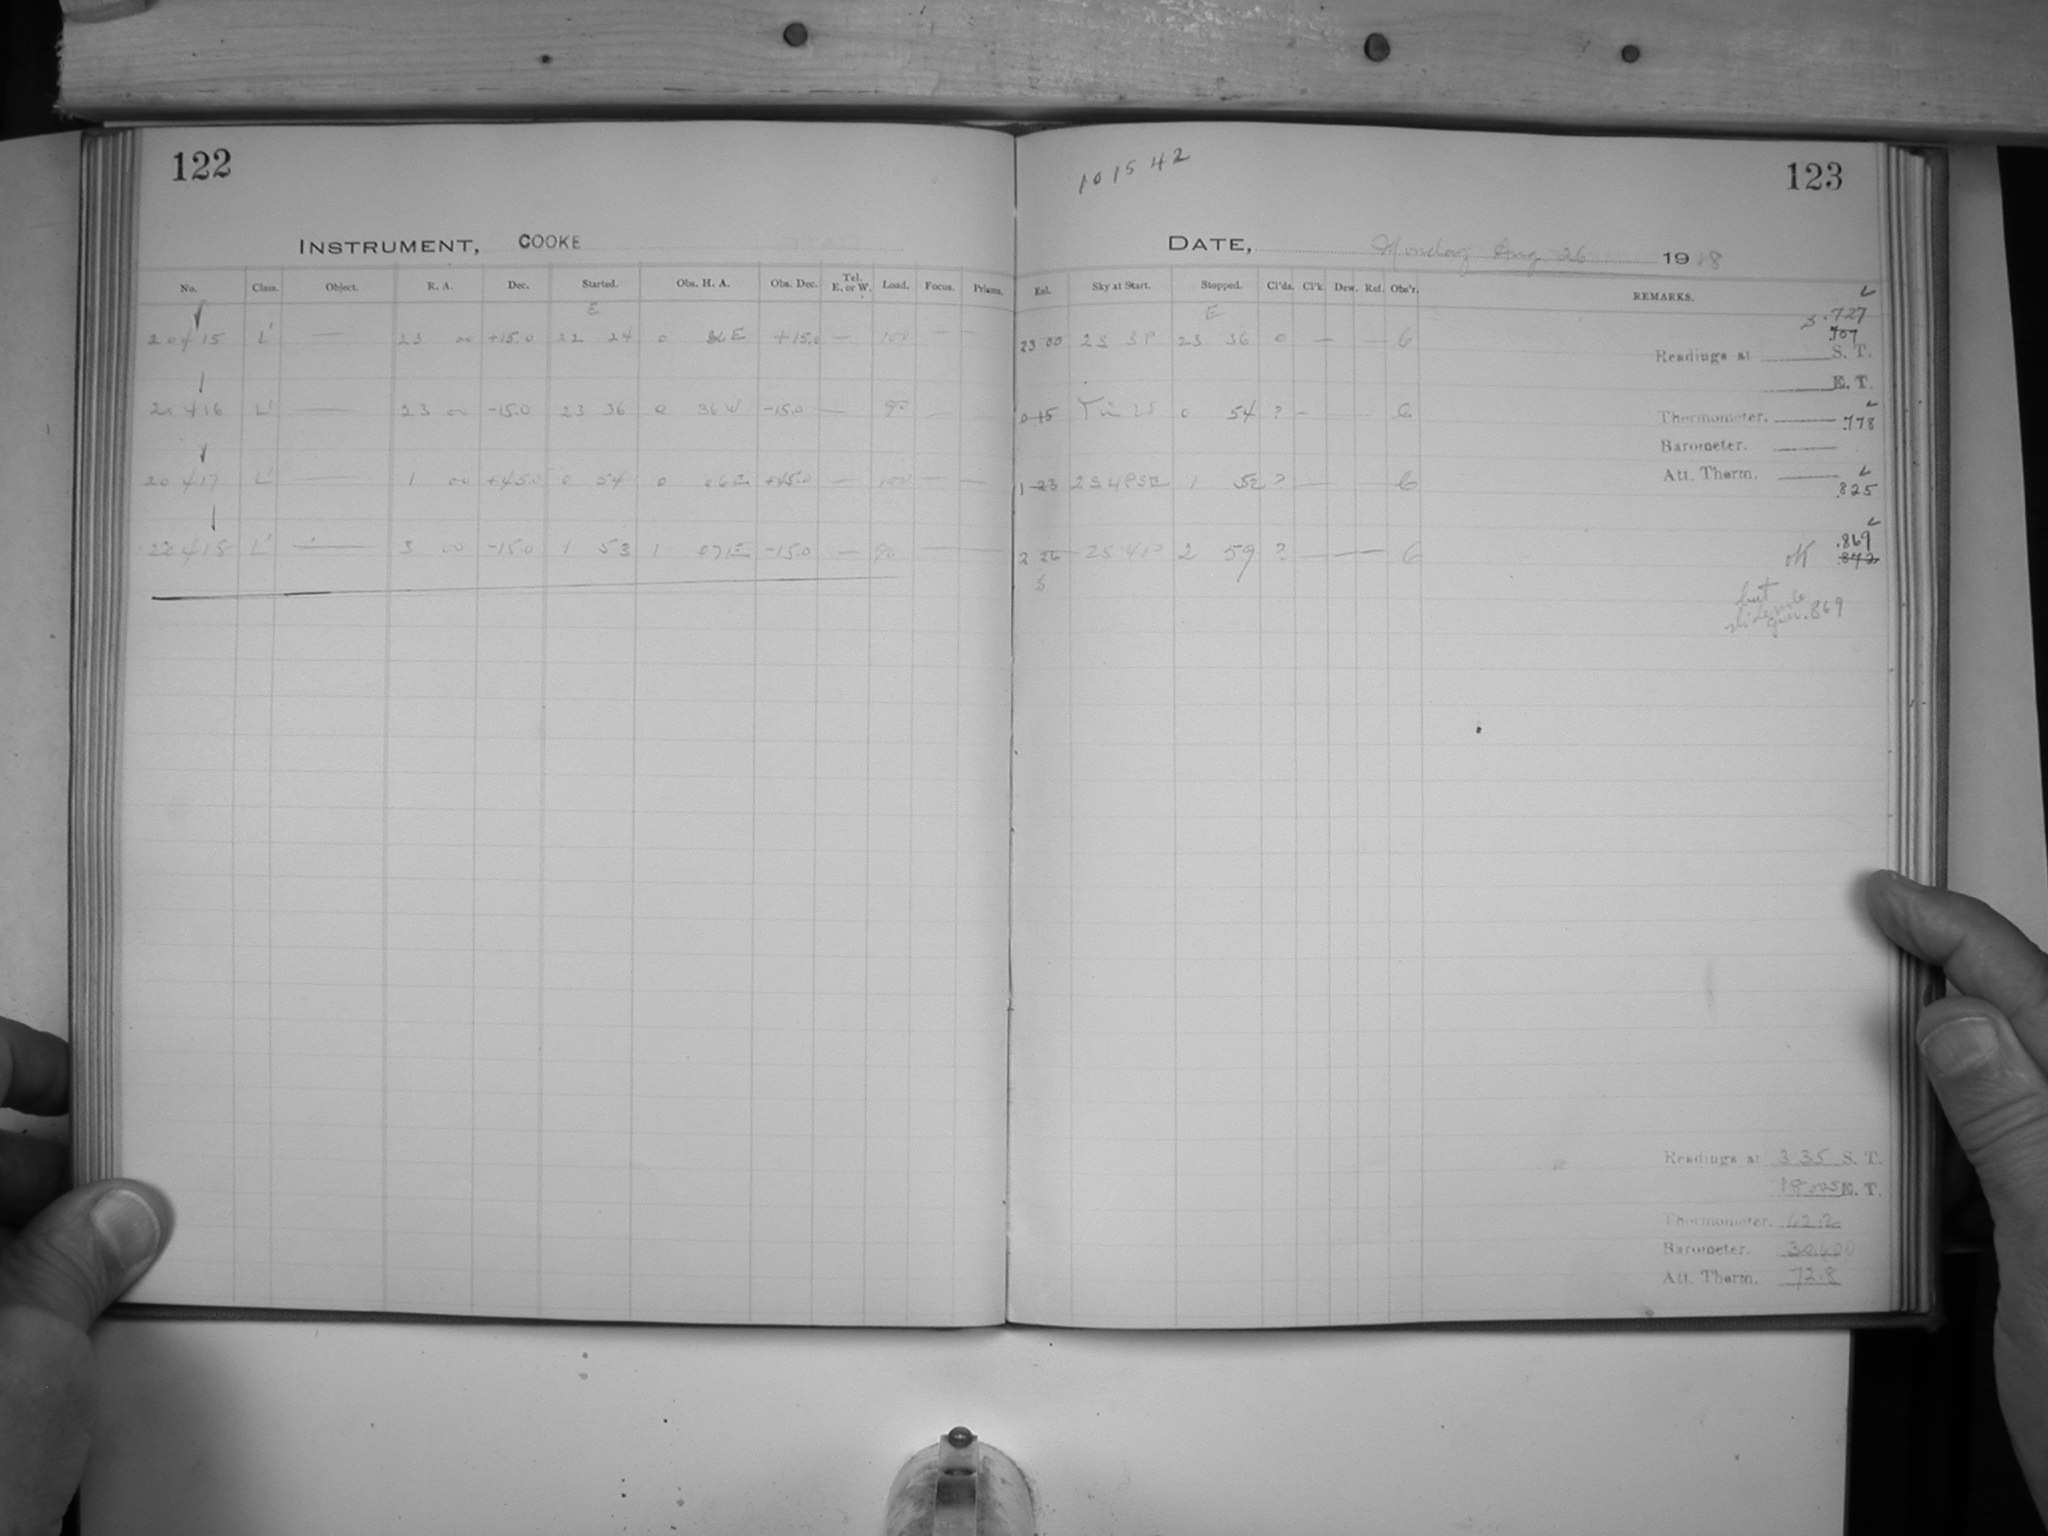 122
INSTRUMENT, COOKE
No. Class. Object. R. A. Dec. Started. Obs. H. A. Obs. Dec. Tel. E. or W. Load. Focus. Prisms.
E
20415 L' — 23 00 +15.0 22 24 0 E +15.0 — 100 — —
20416 L' — 23 00 -15.0 23 36 0 36 W -15.0 — — —
20417 L' — 1 00 +45.0 0 54 0 06 E +45.0 — 100 — —
20418 L' — 3 00 -15.0 1 53 1 07 E -15.0 — 90 — —
101542
123
DATE, Monday Aug 26 1918
Eal. Sky at Start. Stopped. Cl'ds. Cl'k. Dew. Ref. Obs'r. REMARKS.
E
23 00 2S 3P 23 36 0 — — 6
0 15 0 54 ? — 6
1 23 2S4P5E 1 52 ? — 6
2 26 2S 4P 2 59 ? — — 6
5
.727
.707
Readings at S. T.
E. T.
Thermometer. .778
Barometer.
Att. Therm.
.825
.869
OK .872
but
slide rule
gives .869
Readings at 3 35 S. T.
E. T.
Thermometer. 62.2
Barometer.
Att. Therm. 72.8